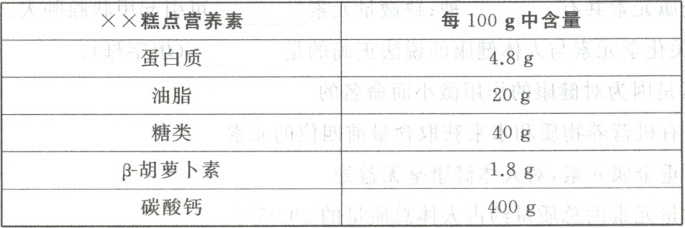 ××糕点营养素 每 100 g 中含量
蛋白质 4.8 g
油脂 20 g
糖类 40 g
β-胡萝卜素 1.8 g
碳酸钙 400 g